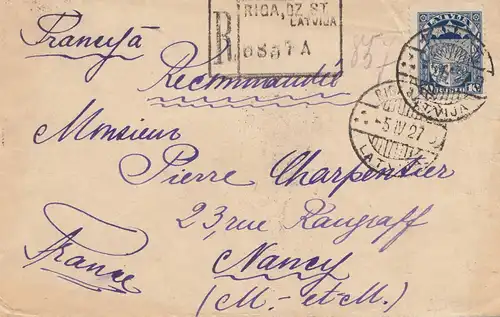 RIGA, DZ. ST.
LATVIJA
R 0857 A
857
Francijā
Recommandée
LATVIJA
RIGA
-5 IV 27
LATVIJA
Monsieur
Pierre Charpentier
23, rue Raugraff
Nancy
(M.-et-M.)
France